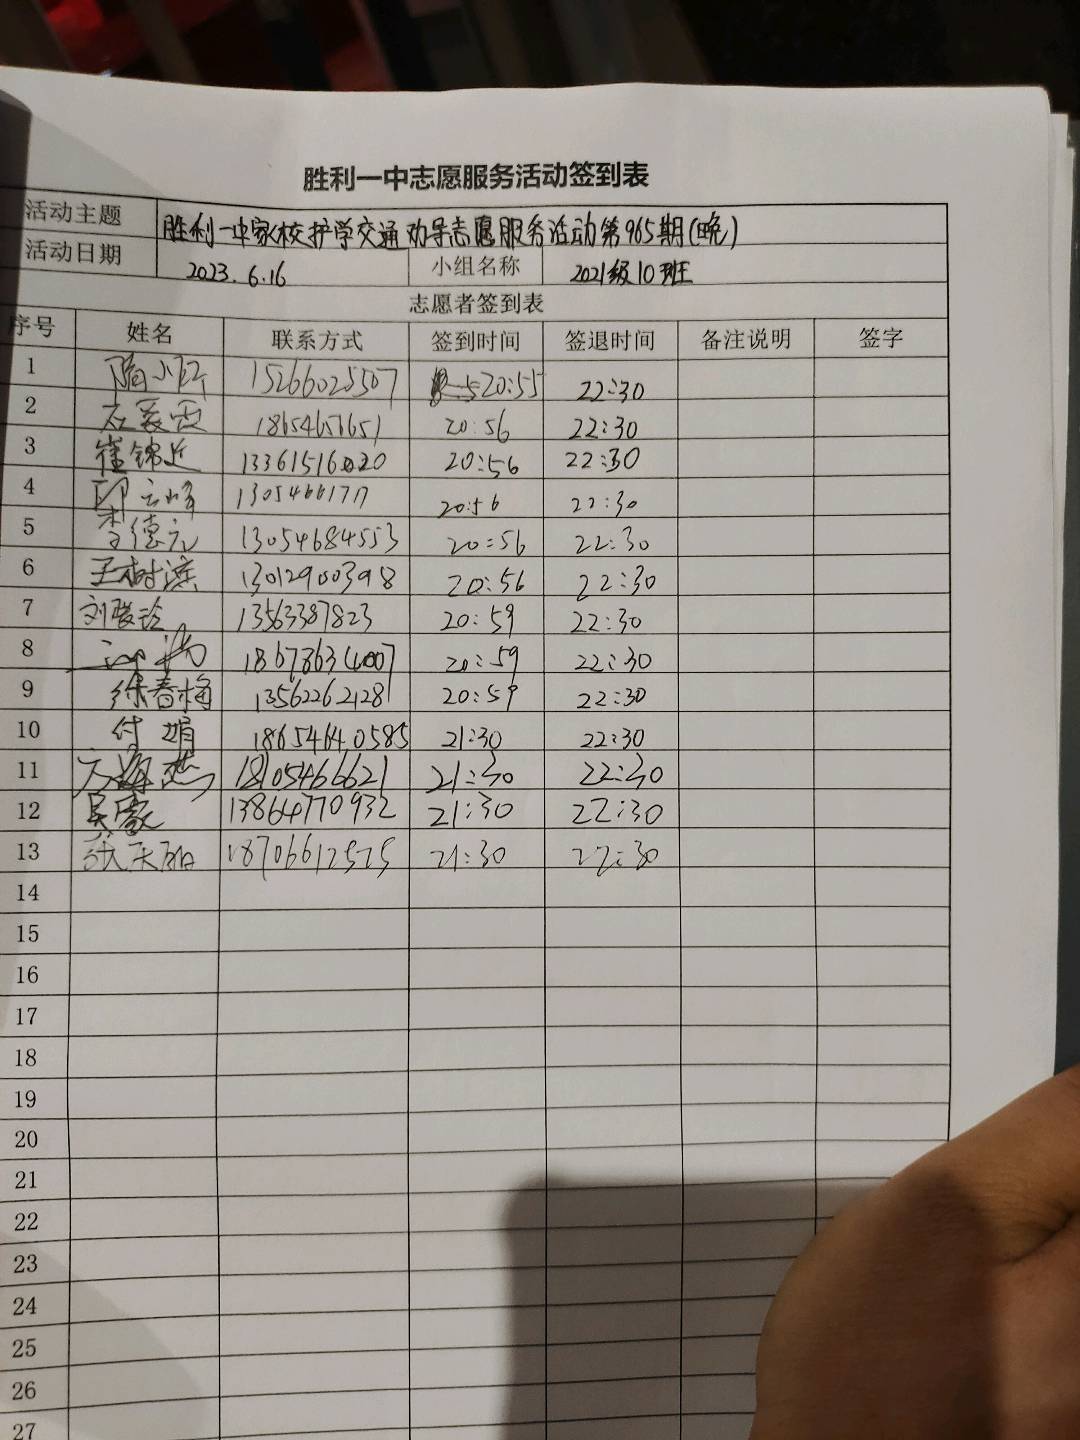 胜利一中志愿服务活动签到表
活动主题 胜利一中家校护学交通劝导志愿服务活动第965期(晚)
活动日期 2023.6.16 小组名称 2021级10班
志愿者签到表
序号 姓名 联系方式 签到时间 签退时间 备注说明 签字
1 15266025507 20:55 22:30
2 18654656651 20:56 22:30
3 崔锦 13361516020 20:56 22:30
4 邱云峰 20:56 22:30
5 李德元 13054684553 20:56 22:30
6 王树滨 13012900398 20:56 22:30
7 刘 13563387823 20:59 22:30
8 18678634007 20:59 22:30
9 徐春梅 13562262128 20:59 22:30
10 付娟 18654640585 21:30 22:30
11 18105466621 21:30 22:30
12 吴家 13864770932 21:30 22:30
13 张 18706612525 21:30 22:30
14
15
16
17
18
19
20
21
22
23
24
25
26
27